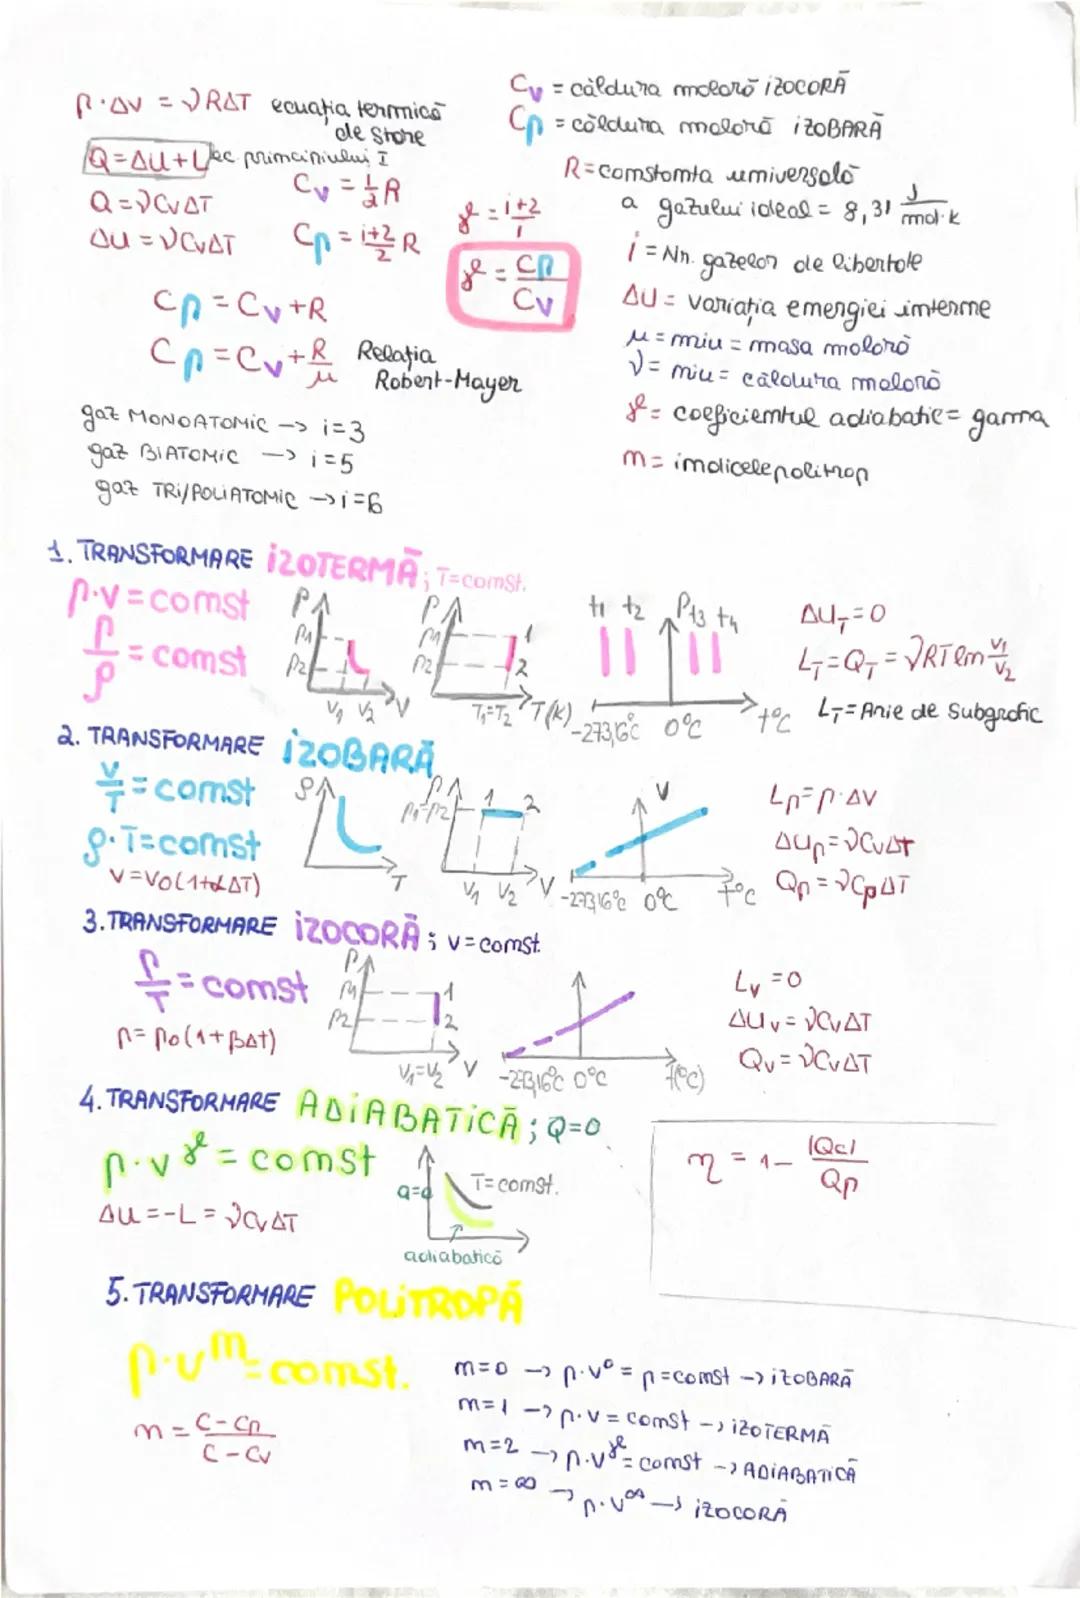 p·ΔV = νRΔT ecuația termică
de stare
Q=ΔU+L ec principiului I
Q=νCvΔT
ΔU=νCvΔT
Cv = 1/2 R
Cp = i+2/2 R
γ = i+2/i
γ = Cp/Cv
Cp = Cv+R
Cp = Cv + R/μ Relația
Robert-Mayer
gaz MONOATOMIC -> i=3
gaz BIATOMIC -> i=5
gaz TRI/POLIATOMIC -> i=6
Cv = căldura molară iZOCORĂ
Cp = căldura molară iZOBARĂ
R=constanta universală
a gazului ideal = 8,31 J/mol·k
i = Nr. gazelor de libertate
ΔU = variația energiei interne
μ = miu = masa molară
ν = niu = căldura molară
γ = coeficientul adiabatic = gamma
n = indicele politrop
1. TRANSFORMARE iZOTERMĂ; T=const.
p·v = const
p/ρ = const
P
P1
P2
V1 V2 V
P
P1
P2
1
2
T1=T2 T(K)
t1 t2 P t3 t4
-273,16°C 0°C t°C
ΔUT=0
LT=QT=νRT ln V1/V2
LT=Arie de subgrafic
2. TRANSFORMARE iZOBARĂ
V/T = const
ρ·T=const
V=V0(1+αΔT)
ρ
T
P
P1=P2
1 2
V1 V2 V
V
-273,16°C 0°C t°C
Lp=p·ΔV
ΔUp=νCvΔt
Qp=νCpΔT
3. TRANSFORMARE iZOCORĂ; v=const.
P/T = const
p= p0(1+βΔt)
P
P1
P2
1
2
V1=V2 V
-273,16°C 0°C t(°C)
Lv=0
ΔUv=νCvΔT
Qv=νCvΔT
4. TRANSFORMARE ADiABATiCĂ; Q=0
p·v^γ = const
ΔU=-L=νCvΔT
Q=0
T=const.
adiabatică
η = 1- |Qc|/Qp
5. TRANSFORMARE POLiTROPĂ
p·v^n = const.
n = C-Cp/C-Cv
n=0 -> p·v^0 = p=const -> iZOBARĂ
n=1 -> p·v = const -> iZOTERMĂ
n=2 -> p·v^γ = const -> ADiABATiCĂ
n=∞ -> p·v^∞ -> iZOCORĂ